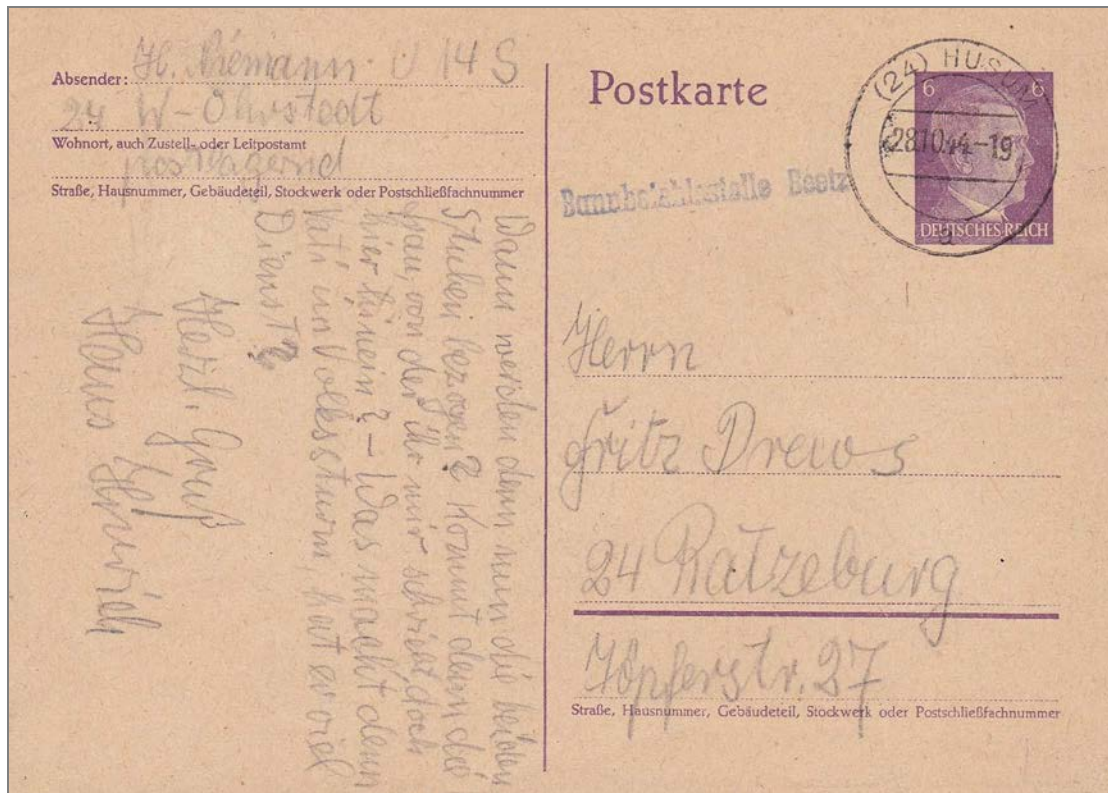 Absender: H. Niemann U 14 S
24 W-Ohrstedt
Wohnort, auch Zustell- oder Leitpostamt
postlagernd
Straße, Hausnummer, Gebäudeteil, Stockwerk oder Postschließfachnummer
Wann werden denn nun die beiden
Stuben bezogen? Kommt denn die
Frau, von der ihr mir schriebt, doch
hier hinein? – Was macht denn
Vati im Volkssturm, hat er viel
Dienst?
Herzl. Gruß
Hans Hinrich
Postkarte
6 6
(24) HUSUM
28.10.44-19
DEUTSCHES REICH
Herrn
Fritz Drews
24 Ratzeburg
Töpferstr. 27
Straße, Hausnummer, Gebäudeteil, Stockwerk oder Postschließfachnummer